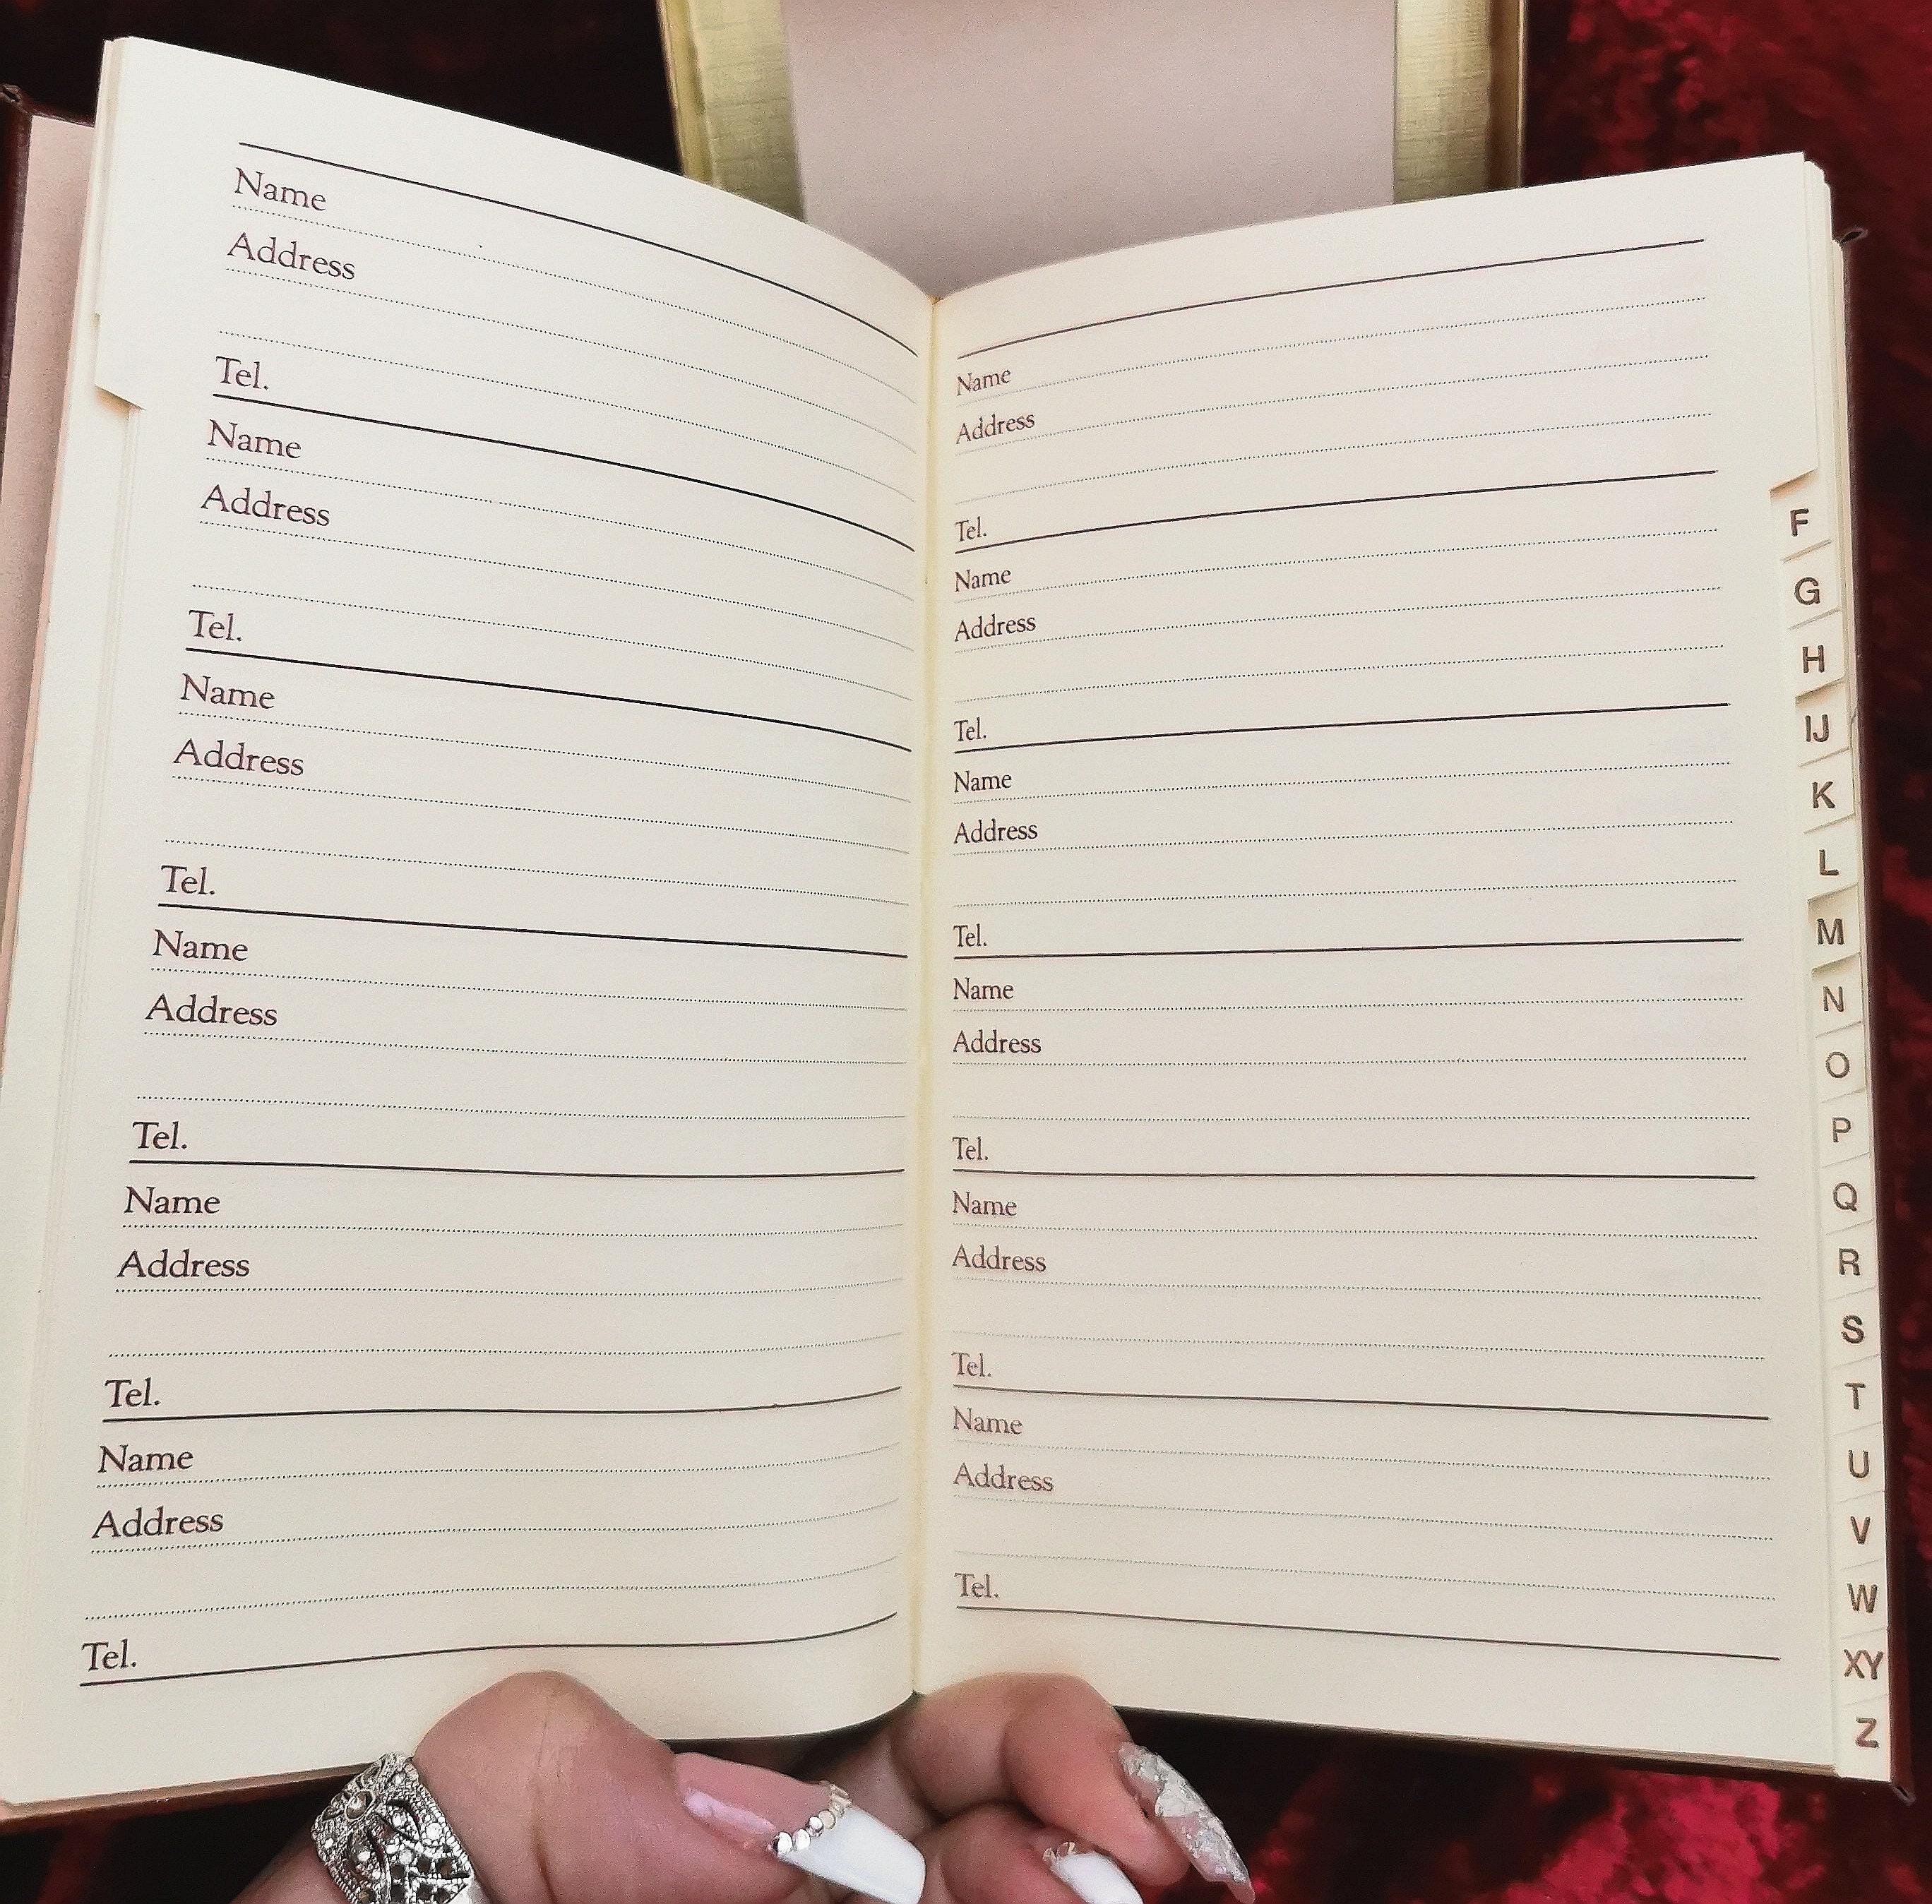 Name
Address
Tel.
Name
Address
Tel.
Name
Address
Tel.
Name
Address
Tel.
Name
Address
Tel.
Name
Address
Tel.
Name
Address
Tel.
Name
Address
Tel.
Name
Address
Tel.
Name
Address
Tel.
Name
Address
Tel.
Name
Address
Tel.
F
G
H
IJ
K
L
M
N
O
P
Q
R
S
T
U
V
W
XY
Z